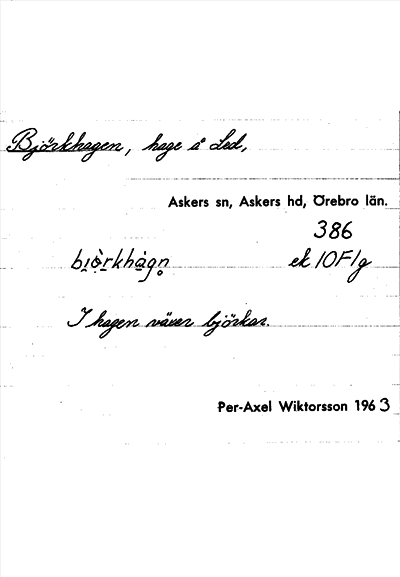 Björkhagen, hage å Led,
Askers sn, Askers hd, Örebro län.
386
bi̯ö̀rkhàgn̥ ek 10F1g
I hagen växer björkar.
Per-Axel Wiktorsson 1963